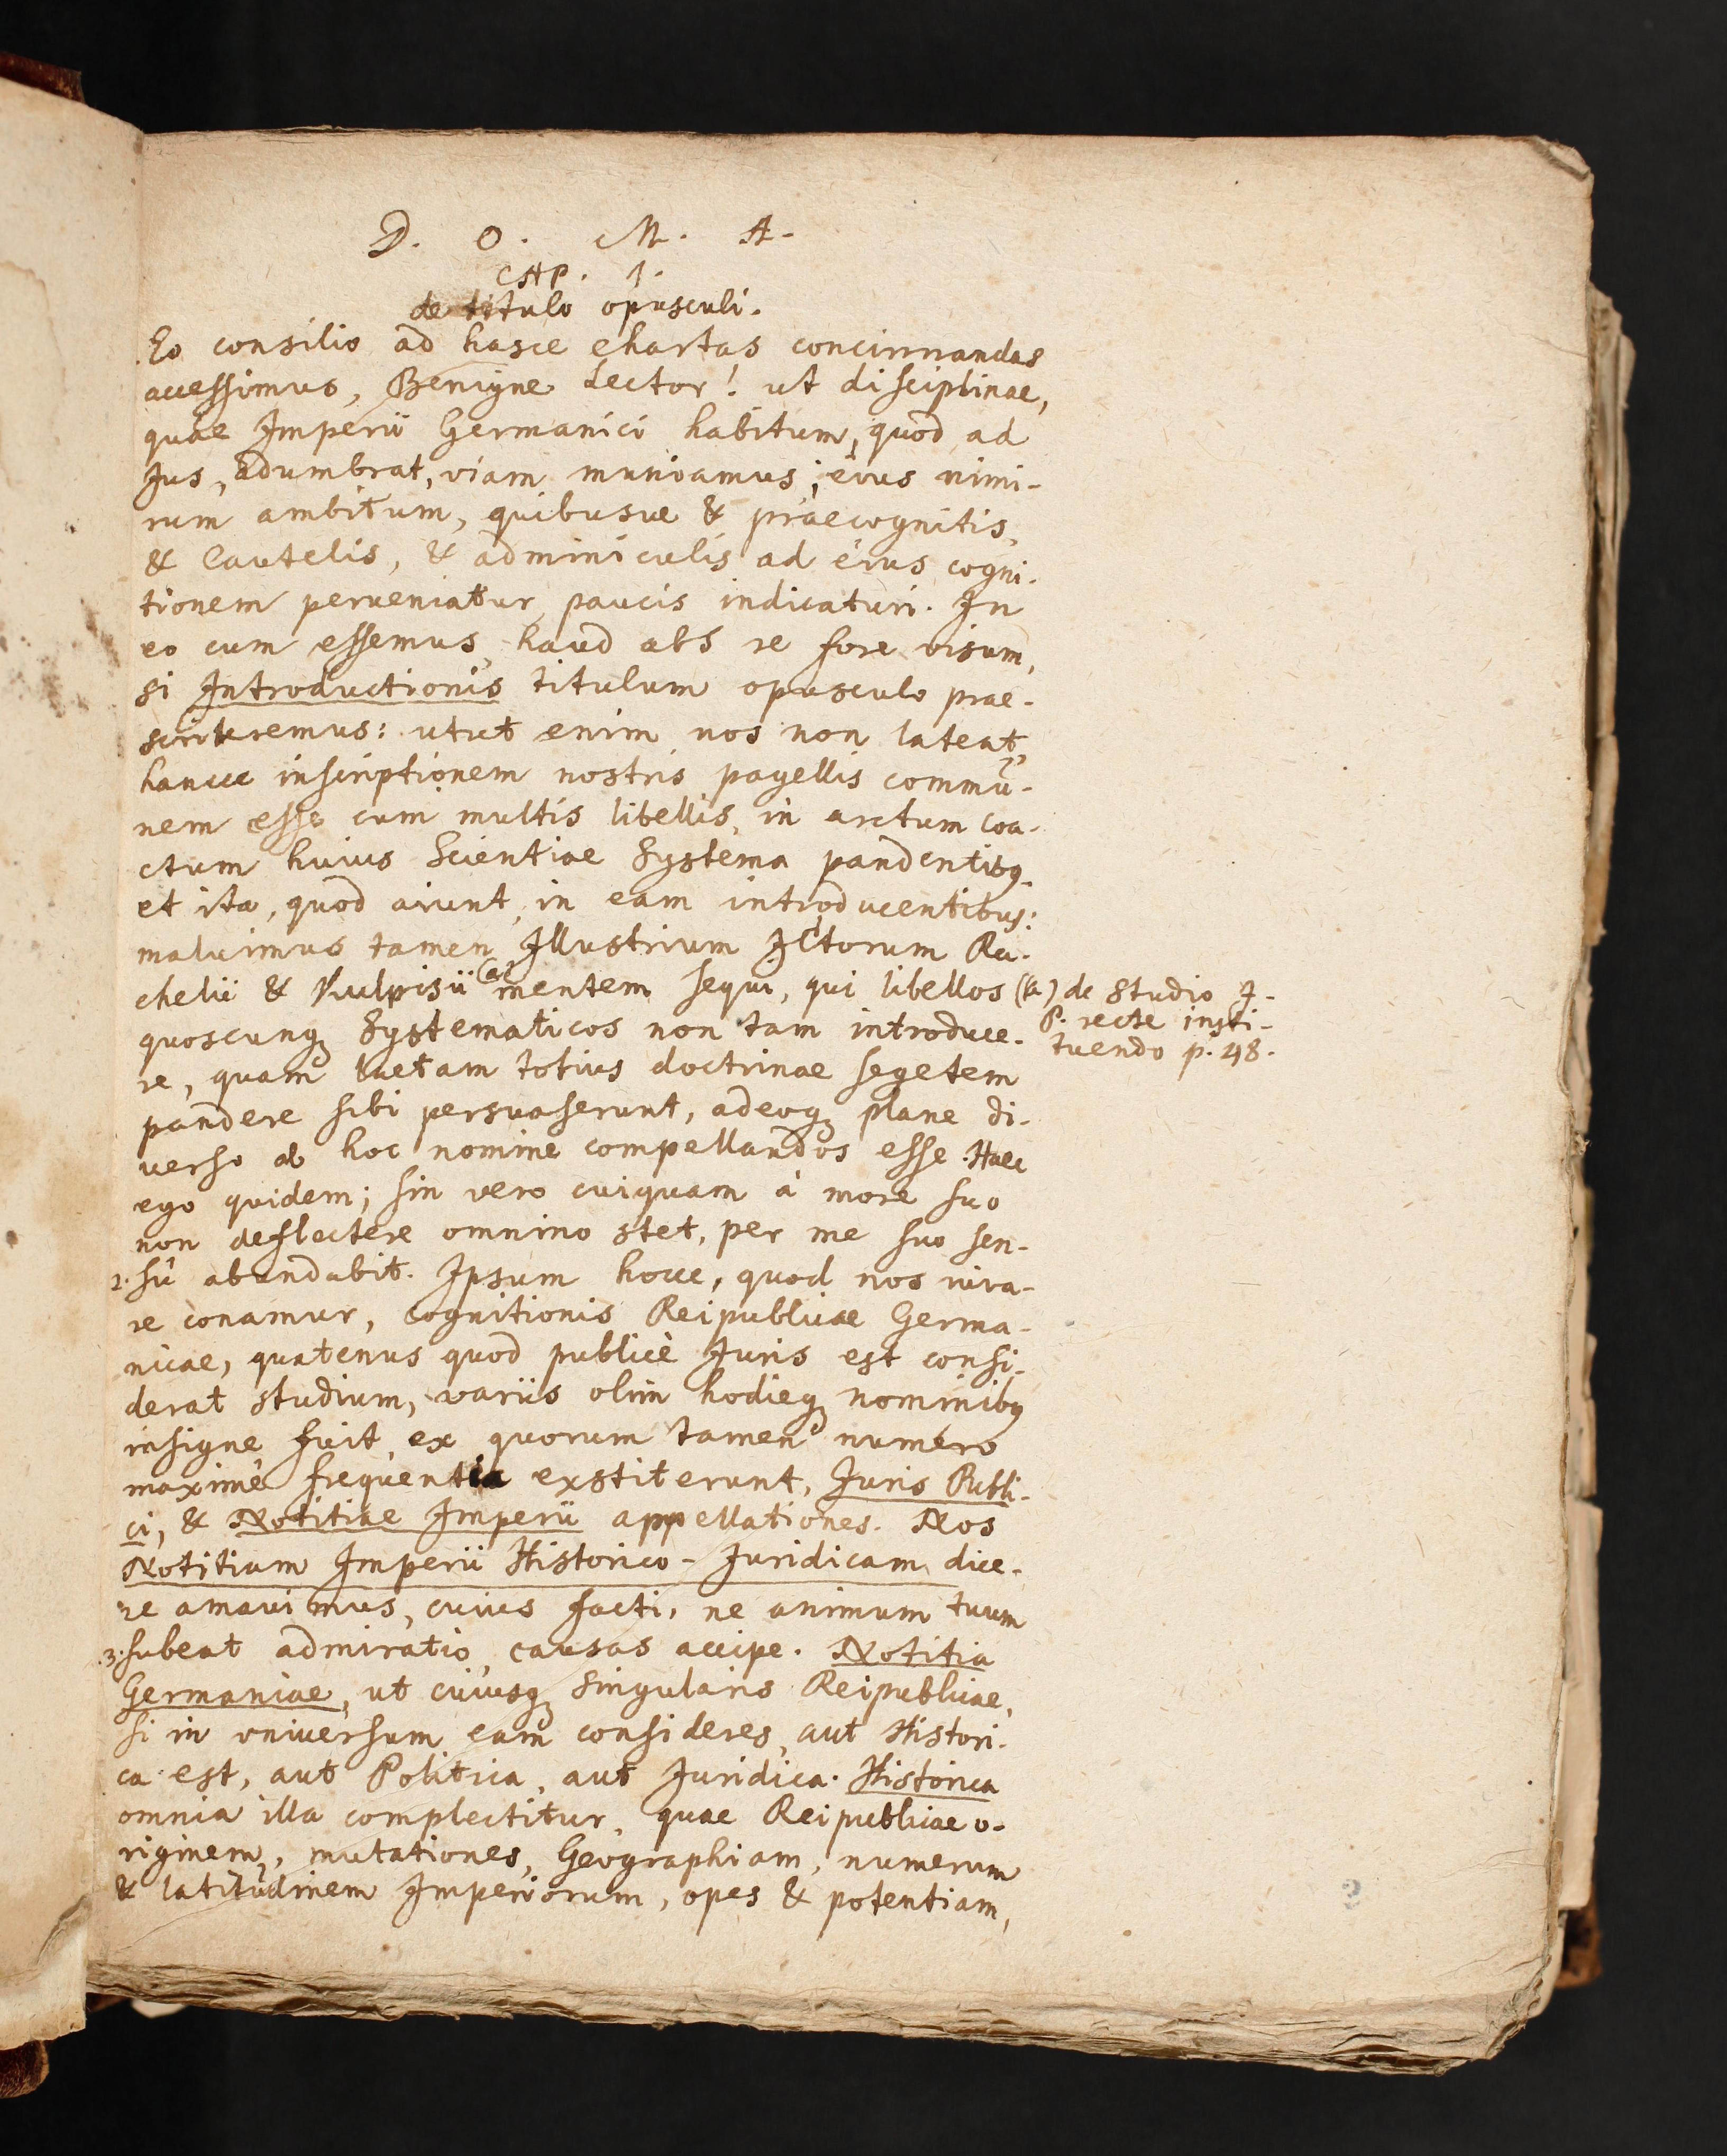 D. O. M. A.
CAP. 1.
de titulo opusculi.
Eo consilio ad hasce chartas concinnandas
accessimus, Benigne Lector! ut disciplinae,
quae Imperii Germanici habitum, quod ad
Jus, adumbrat, viam muniamus; eius nimi-
rum ambitum, quibusue & praecognitis,
& Cautelis, & adminiculis ad eius cogni-
tionem perueniatur, paucis indicaturi. In
eo cum essemus, haud abs re fore visum,
si Introductionis titulum opusculo prae-
scriberemus: utut enim nos non lateat,
hancce inscriptionem nostris pagellis commu-
nem esse cum multis libellis, in arctum coa-
ctum huius Scientiae Systema pandentibq.
et ita, quod aiunt, in eam introducentibus:
maluimus tamen Illustrium JCtorum Ra-
chelii & Kulpisii (a) mentem sequi, qui libellos
quoscunq Systematicos non tam introduce-
re, quam laetam totius doctrinae segetem
pandere sibi persuaserunt, adeoq plane di-
verso ab hoc nomine compellandos esse. Haec
ego quidem; sin vero cuiquam à more suo
non deflectere omnino stet, per me suo sen-
2. sû abundabit. Ipsum hocce, quod nos iuva-
re conamur, cognitionis Reipublicae Germa-
nicae, quatenus quod publicè Juris est consi-
derat studium, variis olim hodieq nominibq
insigne fuit, ex quorum tamen numero
maximè frequentia exstiterunt, Juris Publi-
ci, & Notitiae Imperii appellationes. Nos
Notitiam Imperii Historico-Juridicam dice-
re amauimus, cuius facti, ne animum tuum
3. subeat admiratio, causas accipe. Notitia
Germaniae, ut cuiusq singularis Reipublicae,
si in vniversum eam consideres, aut Histori-
ca est, aut Politica, aut Juridica. Historica
omnia illa complectitur, quae Reipublicae o-
riginem, mutationes, Geographiam, numerum
& latitudinem Imperiorum, opes & potentiam,
(a) de Studio J.
P. recte insti-
tuendo p. 48.